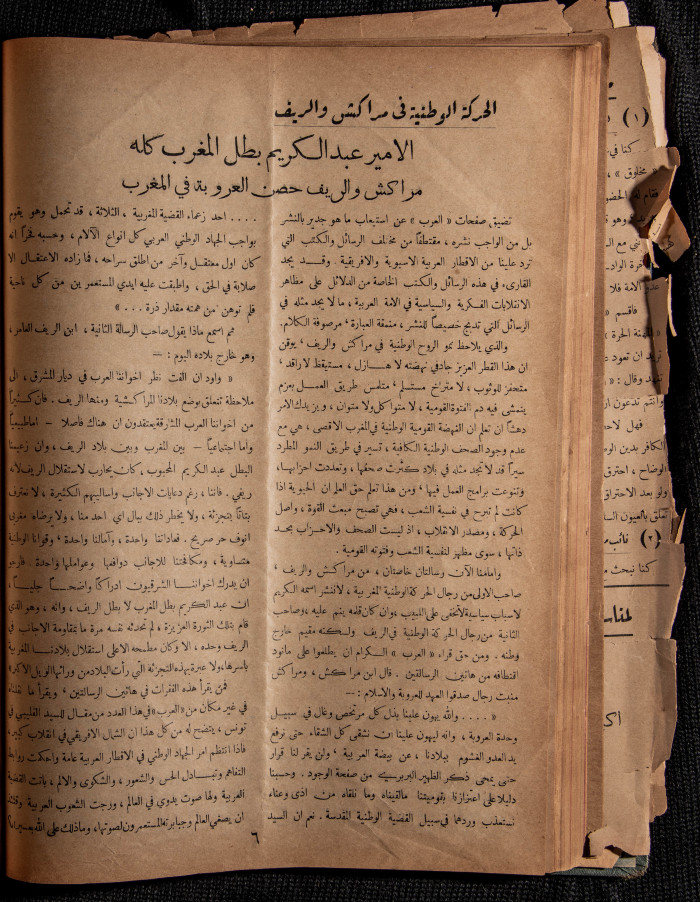 الحركة الوطنية في مراكش والريف
الامير عبد الكريم بطل المغرب كله
مراكش والريف حصن العروبة في المغرب
تضيق صفحات « العرب » عن استيعاب ما هو جدير بالنشر
بل من الواجب نشره ، مقتطفاً من مختلف الرسائل والكتب التي
ترد علينا من الاقطار العربية الاسيوية والافريقية . وقد يجد
القارىء في هذه الرسائل والكتب الخاصة من الدلائل على مظاهر
الانقلابات الفكرية والسياسية في الامة العربية ، ما لا يجد مثله في
الرسائل التي تدبج خصيصاً للنشر ، منمقة العبارة ، مرصوفة الكلام.
والذي يلاحظ نمو الروح الوطنية في مراكش والريف ، يوقن
ان هذا القطر العزيز جاد في نهضته لا هازل ، مستيقظ لا راقد ،
متحفز للوثوب ، لا متراخ مستسلم ، متلمس طريق العمل بعزم
يتمشى فيه دم الفتوة القومية ، لا متواكل ولا متوان ، ويزيدك الامر
دهشاً ان تعلم ان النهضة القومية الوطنية في المغرب الاقصى ، هي مع
عدم وجود الصحف الوطنية الكافية ، تسير في طريق النمو المطرد
سيراً قد لا تجد مثله في بلاد كثرت صحفها ، وتعددت احزابها،
وتنوعت برامج العمل فيها ، ومن هذا تعلم حق العلم ان الحيوية اذا
كانت لم تبرح في نفسية الشعب ، فهي تصبح مبعث القوة ، واصل
الحركة ، ومصدر الانقلاب ، اذ ليست الصحف والاحزاب بحد
ذاتها ، سوى مظهر لنفسية الشعب وفتوته القومية .
وامامنا الآن رسالتان خاصتان ، من مراكش والريف ،
صاحب الاولى من رجال الحركة الوطنية المغربية ، لا ننشر اسمه الكريم
لاسباب سياسية لا تخفى على اللبيب ، وان كان قلمه ينم عليه ، وصاحب
الثانية من رجال الحركة الوطنية في الريف ولكنه مقيم خارج
وطنه . ومن حق قراء « العرب » الكرام ان يطلعوا على مانود
اقتطافه من هاتين الرسالتين . قال ابن مراكش ، ومراكش
منبت رجال صدقوا العهد للعروبة والاسلام : —
« .... والله يهون علينا بذل كل مرتخص وغال في سبيل
وحدة العروبة ، وانه ليهون علينا ان نشقى كل الشقاء حتى نرفع
يد العدو الغشوم ببلادنا ، عن بيضة العربية ، ولن يقر لنا قرار
حتى يمحى ذكر الظهير البربري من صفحة الوجود . وحسبنا
دليلا على اعتزازنا بقوميتنا مالقيناه وما نلقاه من اذى وعناء
نستعذب وردهما في سبيل القضية الوطنية المقدسة . نعم ان السيد
.... احد زعماء القضية المغربية ، الثلاثة ، قد تحمل وهو يقوم
بواجب الجهاد الوطني العربي كل انواع الآلام ، وحسبه فخراً انه
كان اول معتقل وآخر من اطلق سراحه ، فما زاده الاعتقال الا
صلابة في الحق ، واطبقت عليه ايدي المستعمرين من كل ناحية
فلم توهن من همته مقدار ذرة ... »
ثم اسمع ماذا يقول صاحب الرسالة الثانية ، ابن الريف العامر ،
وهو خارج بلاده اليوم : —
« واود ان الفت نظر اخواننا العرب في ديار المشرق ، الى
ملاحظة تتعلق بوضع بلادنا المراكشية ومنها الريف . فان كثيراً
من اخواننا العرب المشارقة يعتقدون ان هناك فاصلا — اما طبيعياً
واما اجتماعياً — بين المغرب وبين بلاد الريف ، وان زعيمنا
البطل عبد الكريم المحبوب ، كان يحارب لاستقلال الريف لانه
ريفي . فاننا ، رغم دعايات الاجانب واساليبهم الكثيرة ، لا نعترف
بتاتاً بتجزئة ، ولا يخطر ذلك ببال اي احد منا ، ولا يرضاه مغربي
انوف حر صريح . فعاداتنا واحدة ، وآمالنا واحدة ، وقوانا الوطنية
متساوية ، ومكافحتنا للاجانب دوافعها وعواملها واحدة . فارجو
ان يدرك اخواننا الشرقيون ادراكاً واضحاً جلياً ،
ان عبد الكريم بطل المغرب لا بطل الريف ، وانه ، وهو الذي
قام بتلك الثورة العزيزة ، لم تحدثه نفسه مرة ما بمقاومة الاجانب في
الريف وحده ، الا وكان مطمحه الاعلى استقلال بلادنا المغربية
باسرها، ولا عبرة بهذه التجزئة التي رأت البلاد من ورائها الويل الاكبر
فمن يقرأ هذه الفقرات في هاتين الرسالتين ، ويقرأ ما نقلناه
في غير مكان من «العرب» في هذا العدد من مقال للسيد القليبي في
تونس ، يتضح له من كل هذا ان الشمال الافريقي في انقلاب كبير،
فاذا انتظم امر الجهاد الوطني في الاقطار العربية عامة واحكمت روابط
التفاهم وتبادل الحس والشعور ، والشكوى والالم ، باتت القضية
العربية ولها صوت يدوي في العالم ، وزجت الشعوب العربية
ان يصغي العالم وجبابرته المستعمرون لصوتها، وما ذلك على الله بعسير
٦